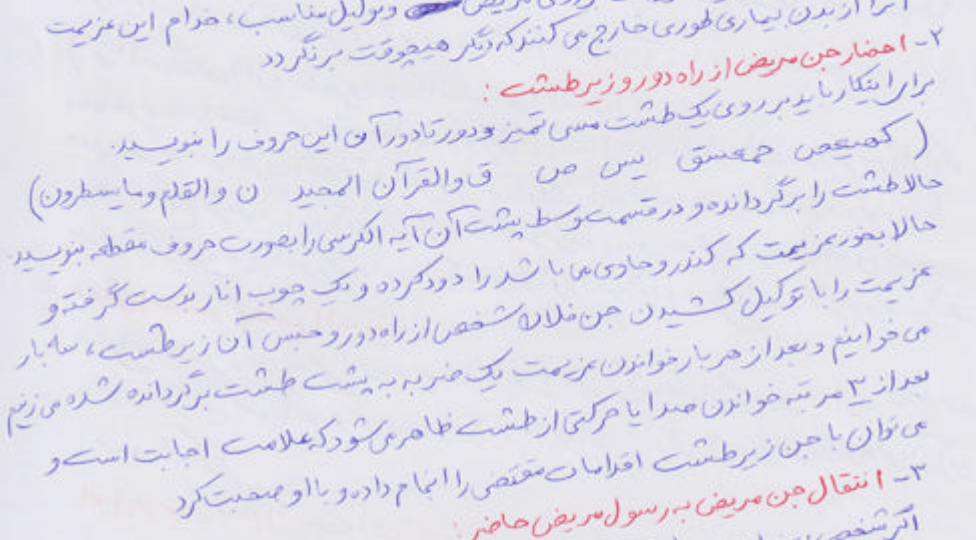 و توکیل مناسب، خدام این عزیمت
آنرا از بدن بیماری طوری خارج می کنند که دیگر هیچوقت برنگردد
۲- احضار جن مریض از راه دور و زیر طشت :
برای اینکار باید بر روی یک طشت مسی تمیز و دور تا دور آن این حروف را بنویسید.
( کهیعص حمعسق یس ص ق والقرآن المجید ن والقلم و مایسطرون)
حالا طشت را برگردانده و در قسمت وسط پشت آن آیه الکرسی را بصورت حروف مقطعه بنویسید.
حالا بخور عزیمت که کندر و حاوی می باشد را دود کرده و یک چوب انار بدست گرفته و
عزیمت را با توکیل کشیدن جن فلان شخص از راه دور و حبس آن زیر طشت، سه بار
می خوانیم و بعد از هر بار خواندن عزیمت یک ضربه به پشت طشت برگردانده شده می زنیم
بعد از ۳ مرتبه خواندن صدا یا حرکتی از طشت ظاهر می شود که علامت اجابت است و
می توان با جن زیر طشت اقدامات مقتضی را انجام داده و با او صحبت کرد
۳- انتقال جن مریض به رسول مریض حاضر :
اگر شخص